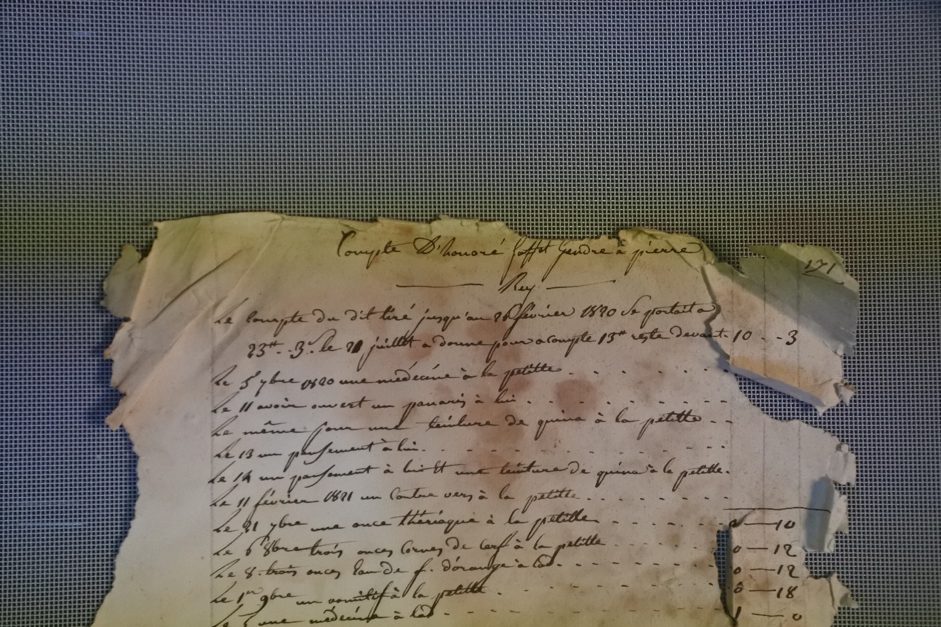 Compte D'honoré Goffet Gendre à pierre 171
Rey
Le Compte du dit tiré jusqu'au 26 février 1820 se portait a
23# .. 3 s le 21 juillet a donné pour acompte 13# reste devant 10 .. 3
Le 5 7bre 1820 une médecine à la petitte
Le 11 avoir ouvert un panaris à lui
Le même jour une teinture de quina à la petitte
Le 13 un pansement à lui
Le 14 un pansement à lui et une teinture de quina à la petitte
Le 11 février 1821 un Contre vers à la petitte
Le 21 7bre une once thériaque à la petitte 0 — 10
Le 6 8bre trois onces Cornes de Cerf à la petitte 0 — 12
Le 8 trois onces Eau de f. d'orange à 0 — 12
Le 1er 9bre un vomitif à la petitte 0 — 18
Le 5 une médecine à 1 — 0